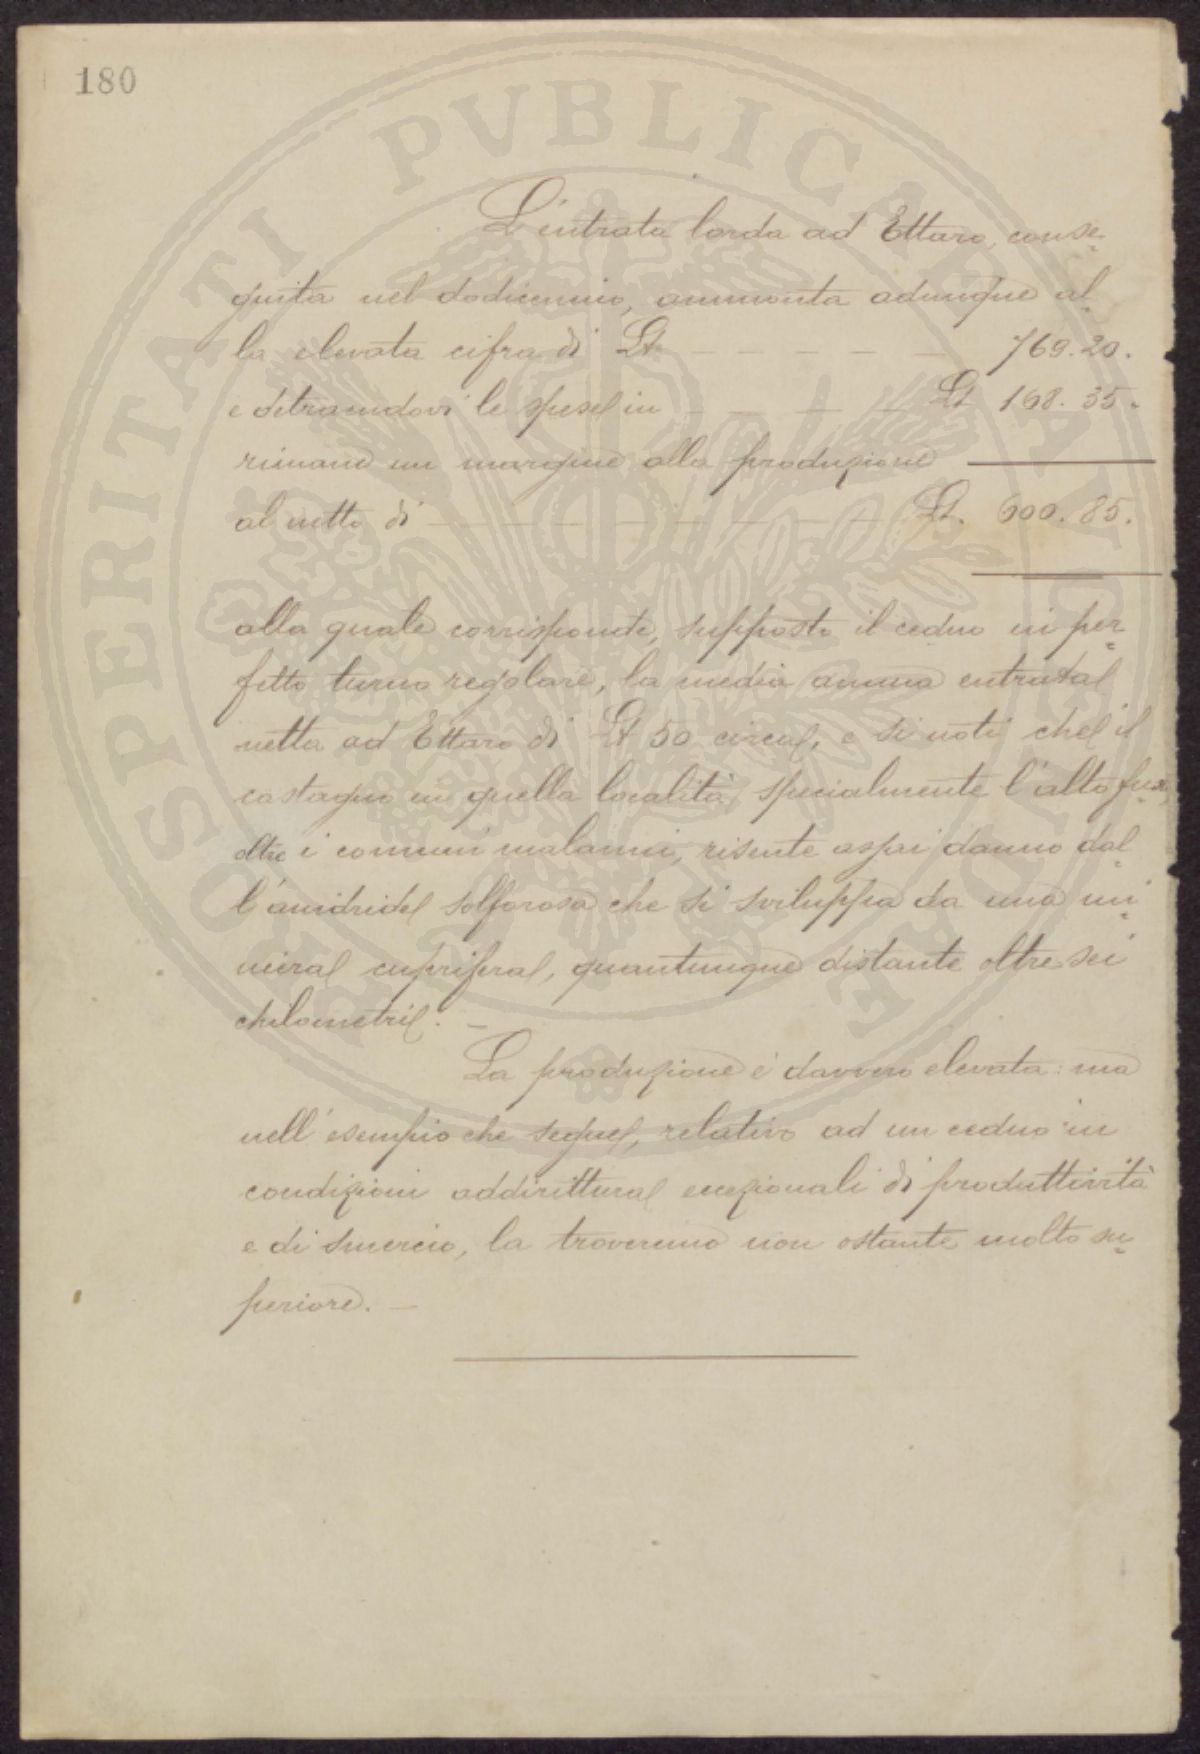 180
PROSPERITATI PVBLICAE AVGENDAE
L'entrata lorda ad Ettaro, conse=
guita nel dodicennio, ammonta adunque al=
la elevata cifra di Lt — — — — — 769.20.
e detraendovi le spese in — — — — Lt 168.35.
rimane un margine alla produzione
al netto di — — — — — — — Lt. 600.85.
alla quale corrisponde, supposto il ceduo in per=
fetto turno regolare, la media annua entrata
netta ad Ettaro di Lt 50 circa, e si noti che il
castagno in quella località, specialmente l'alto fusto,
oltre i comuni malanni, risente assai danno dal=
l'anidride solforosa che si sviluppa da una mi=
niera cuprifera, quantunque distante oltre sei
chilometri. —
La produzione è davvero elevata: ma
nell'esempio che segue, relativo ad un ceduo in
condizioni addirittura eccezionali di produttività
e di smercio, la troveremo non ostante molto su=
periore. —